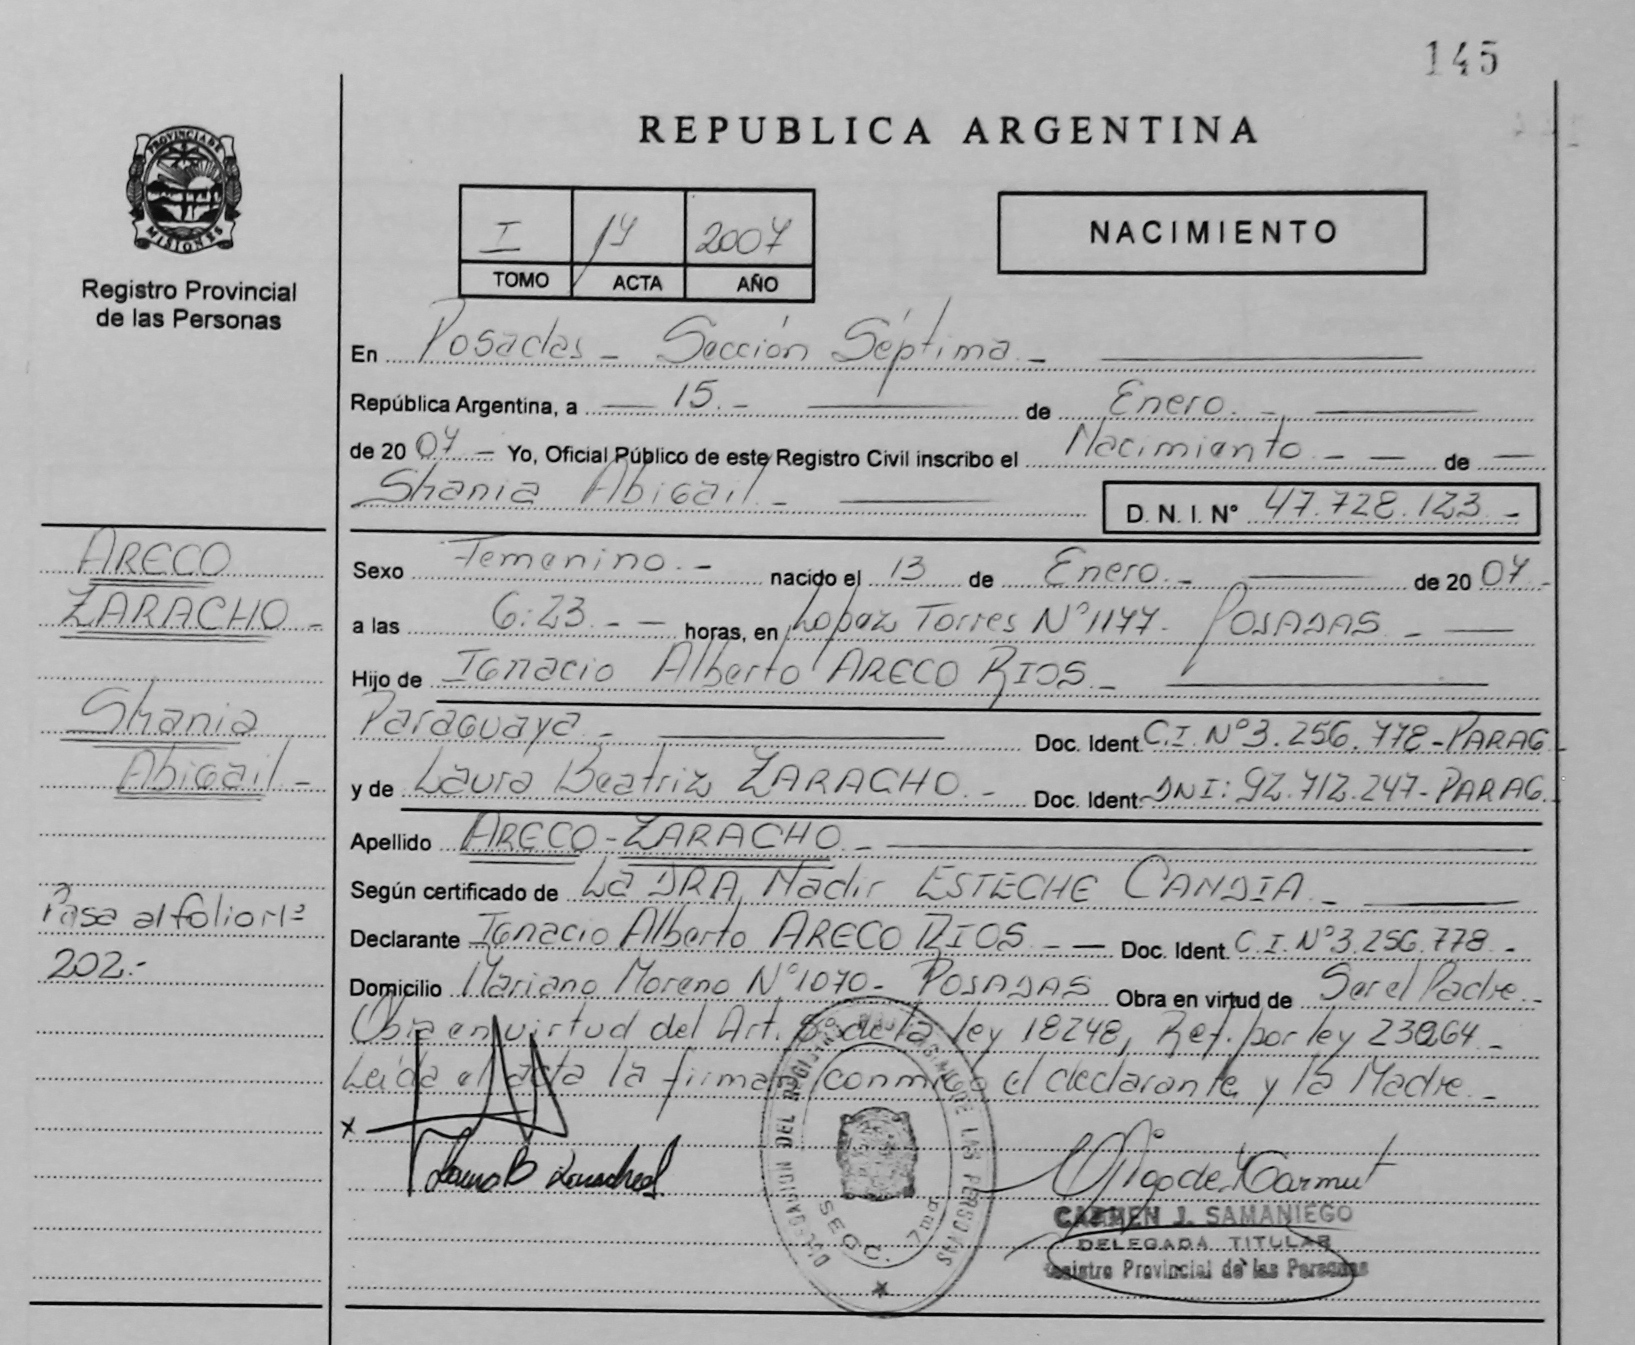 145
PROVINCIA DE
MISIONES
Registro Provincial
de las Personas
REPUBLICA ARGENTINA
I 14 2007
TOMO ACTA AÑO
NACIMIENTO
En Posadas - Sección Séptima -
República Argentina, a — 15. - de Enero. -
de 20 07 - Yo, Oficial Público de este Registro Civil inscribo el Nacimiento - - de —
Shania Abigail. - D. N. I. N° 47.728.123 -
Sexo Femenino. - nacido el 13 de Enero. - de 20 07 -
a las 6:23. - - horas, en Lopez Torres N° 1177. POSADAS - —
Hijo de Ignacio Alberto ARECO RIOS. -
Paraguaya - Doc. Ident. C.I. N° 3.256.778 - PARAG
y de Laura Beatriz ZARACHO. - Doc. Ident. DNI: 92.712.247 - PARAG.
Apellido ARECO - ZARACHO. -
Según certificado de La DRA, Nadir ESTECHE CANDIA. -
Declarante Ignacio Alberto ARECO RIOS - — Doc. Ident. C.I. N° 3.256.778 -
Domicilio Mariano Moreno N° 1070 - POSADAS Obra en virtud de Ser el Padre. -
Obra en virtud del Art. de la ley 18248, Ref. por ley 23264. -
Leida el acta la firman conmigo el declarante y la Madre. -
ARECO
ZARACHO -
Shania
Abigail -
Pasa al folio Nº
202.-
x
DELEGACION DEL REGISTRO DE LAS PERSONAS
SECC. 7ma
CARMEN J. SAMANIEGO
DELEGADA TITULAR
Registro Provincial de las Personas